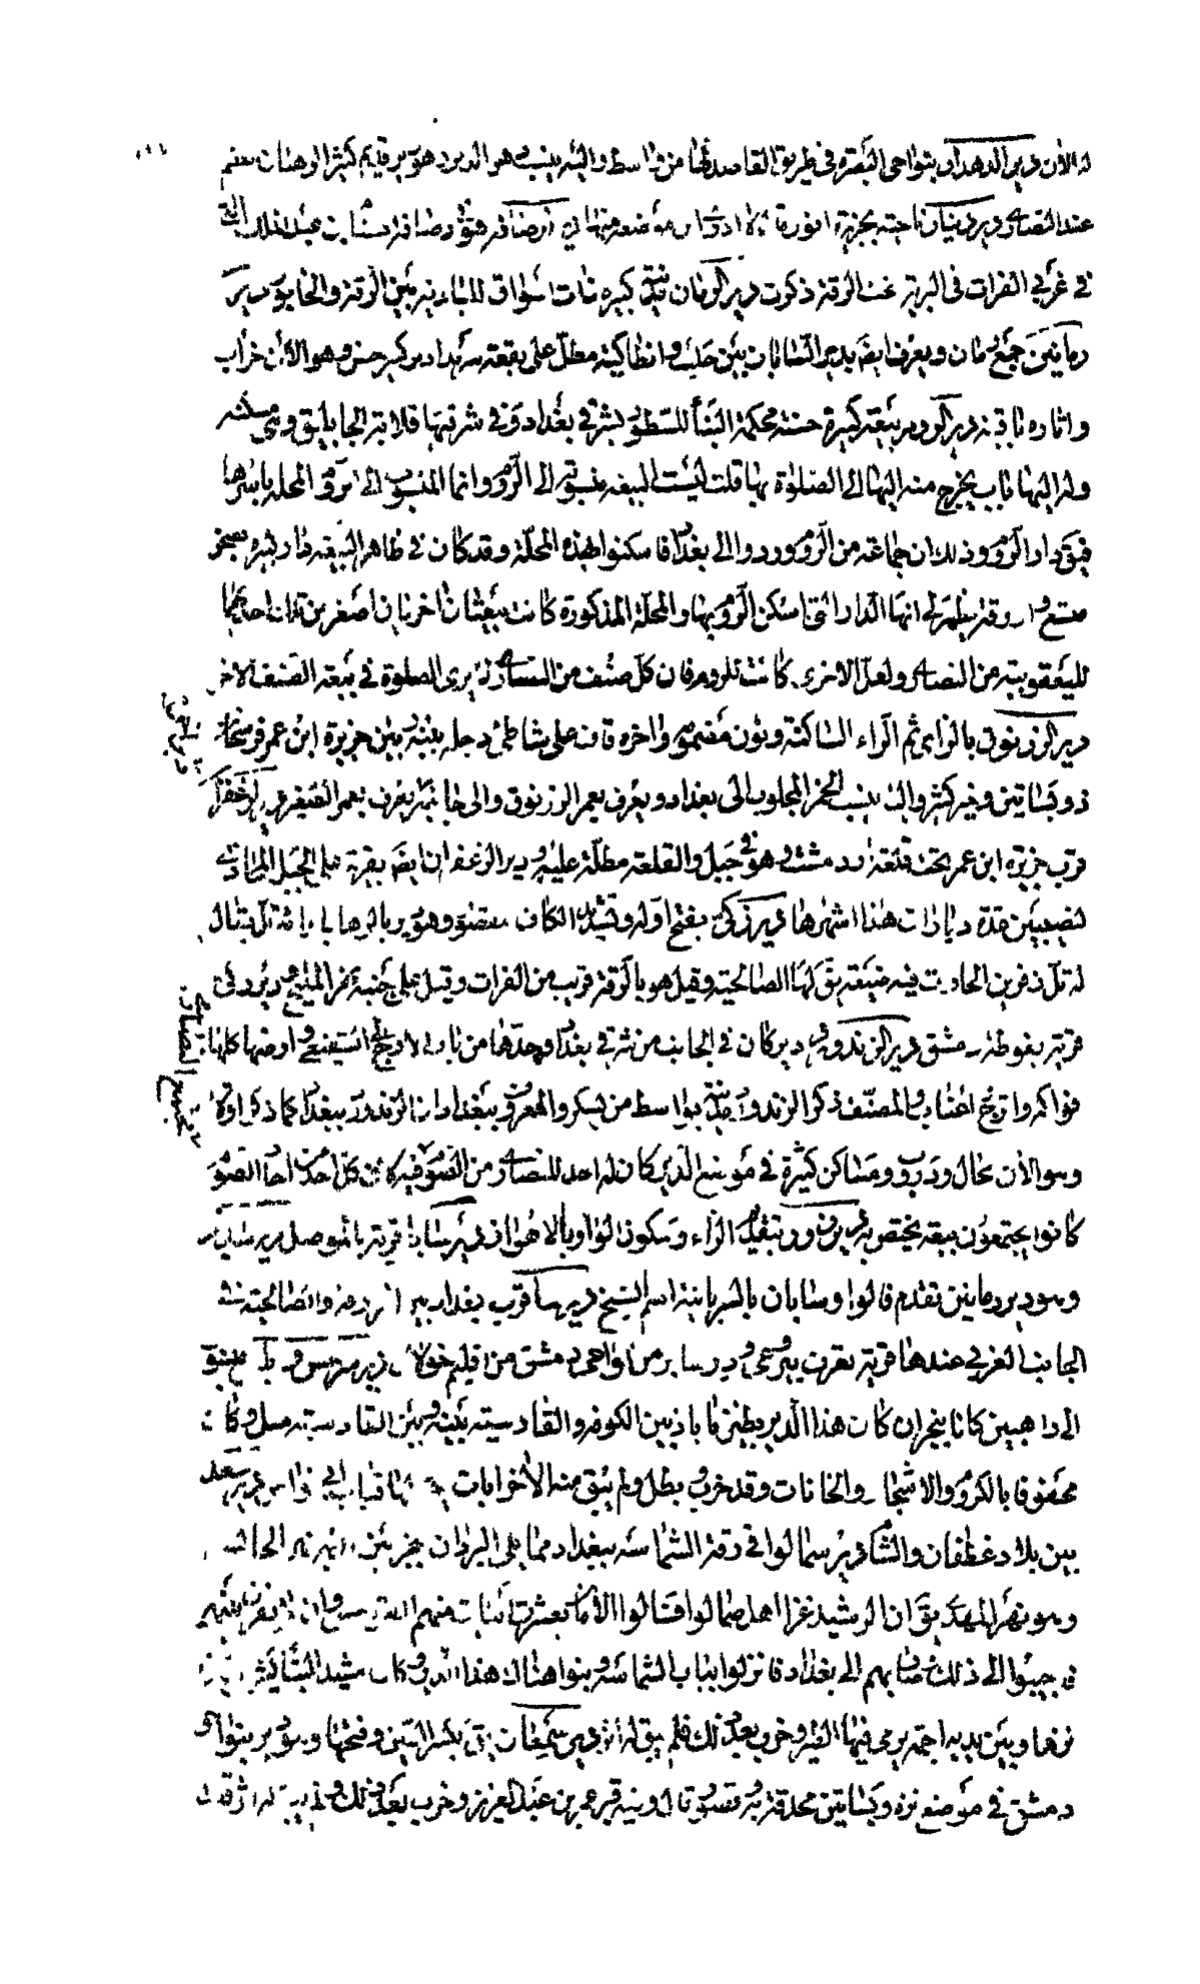 له الان دير الدهدار بنواحي البصرة في طريق القاصد لها من واسط واليه ينسب هو الدير وهو دير قديم كثير الرهبان معظم
عند النصارى دير دينار ناحية بجزيرة اقور
في غربي الفرات في البرية عند الرقة ذكرت دير الرمان مدينة كبيرة ذات اسواق للبادية بين الرقة والخابور دير
رمانين جمع رمان ويعرف ايضا بدير السابان بين حلب وانطاكية مطل على بقعة سرمدا دير كبير حسن وهو الان خراب
واثاره باقية دير الروم بيعة كبيرة حسنة محكمة البناء للنسطورية بشرقي بغداد وفي شرقيها قلاية الجاثليق
وله اليها باب يخرج منه اليها الى الصلوة بها قلت ليست البيعة منسوبة الى الروم وانما المنسوب الى الروم المحلة باسرها
فيق دار الروم وذلك ان جماعة من الروم وردوا الى بغداد فاسكنوا بهذه المحلة وقد كان في ظاهر البيعة دار كبيرة بصحن
متسع واروقة يظهر لي انها الدار التي اسكن الروم بها والمحلة المذكورة كانت بيعتان اخريان اصغر من تلك احديهما
لليعقوبية من النصارى ولعل الاخرى كانت للروم فان كل صنف من النصارى لا يرى الصلوة في بيعة الصنف الاخر
دير الزرنوق بالزاي ثم الراء الساكنة ونون مضمومة واخره قاف على شاطئ دجلة بينه وبين جزيرة ابن عمر فرسخان
ذو بساتين وخمر كثير واليه ينسب الخمر المجلوب الى بغداد ويعرف بعمر الزرنوق والى جانبه يعرف بعمر الصغير دير الزعفران
قرب جزيرة ابن عمر تحت قلعة اردمشت وهو في جبل والقلعة مطلة عليه ودير الزعفران ايضا بقربه على الجبل المحاذي
لنصيبين عدة ديارات هذا اشهرها دير زكي بفتح اوله وتشديد الكاف مقصور وهو دير بالرها بازائه تل يقال
له تل زفر بن الحارث فيه ضيعة يق لها الصالحية وقيل هو بالرقة قريب من الفرات وقيل على جنبه نهر البليخ ودير زكي
قرية بغوطة دمشق دير الزندورد دير كان في الجانب الشرقي ببغداد وحدها من باب الازج الى السفيعي وارضها كلها
فواكه واترج اعناب والمصنف ذكر الزندورد مدينة بواسط من كسكر والمعروف ببغداد ان الزندورد ببغداد كما ذكر اولا
وهو الان محال ودروب ومساكن كثيرة في موضع الدير كان له احد للنصارى من الصوم فيه كان كل احد من احاد الصوم
كانوا يجتمعون ببيعة يختص به دير زور بتقديم الزاء وسكون الواو بالاهواز دير سابا قرية بالموصل دير سابان
وهو دير رمانين تقدم قالوا وسابان بالسريانية اسم الشيخ دير سابر قرب بغداد بين المزرفة والصالحية في
الجانب الغربي عندها قرية تعرف ببزوغى ودير سابر من نواحي دمشق من اقليم خولان دير سرجس وبكس
الى راهبين كانا بنجران كان هذا الدير بطيزناباذ بين الكوفة والقادسية بينه وبين القادسية ميل وكان
محفوفا بالكروم والاشجار والخانات وقد خرب وبطل ولم يبق منه الا خرابات قباب ابي نواس دير سعد
بين بلاد غطفان والشام دير سمالو في رقة الشماسية ببغداد مما يلي البردان ينجز بين يديه نهر الخالص
وهو نهر المهدي يق ان الرشيد غزا اهل صمالوا فسالوا الامان لعشرة ابيات منهم القومس وان لا يفرق بينهم
فاجيبوا الى ذلك فجاء بهم الى بغداد فانزلوا بباب الشماسية وبنوا هناك هذا الدير وكان مشيد البناء كثير
نزها وبين يديه اجمة يرمى فيها الطير وخرب بعد ذلك فلم يبق له اثر دير سمعان يق بكسر السين وفتحها وهو دير بنواحي
دمشق في موضع نزه وبساتين محدقة به وقصور قال وفيه قبر عمر بن عبد العزيز وخرب بعد ذلك ولم يبق له اثر قلت
يجتمع النصارى